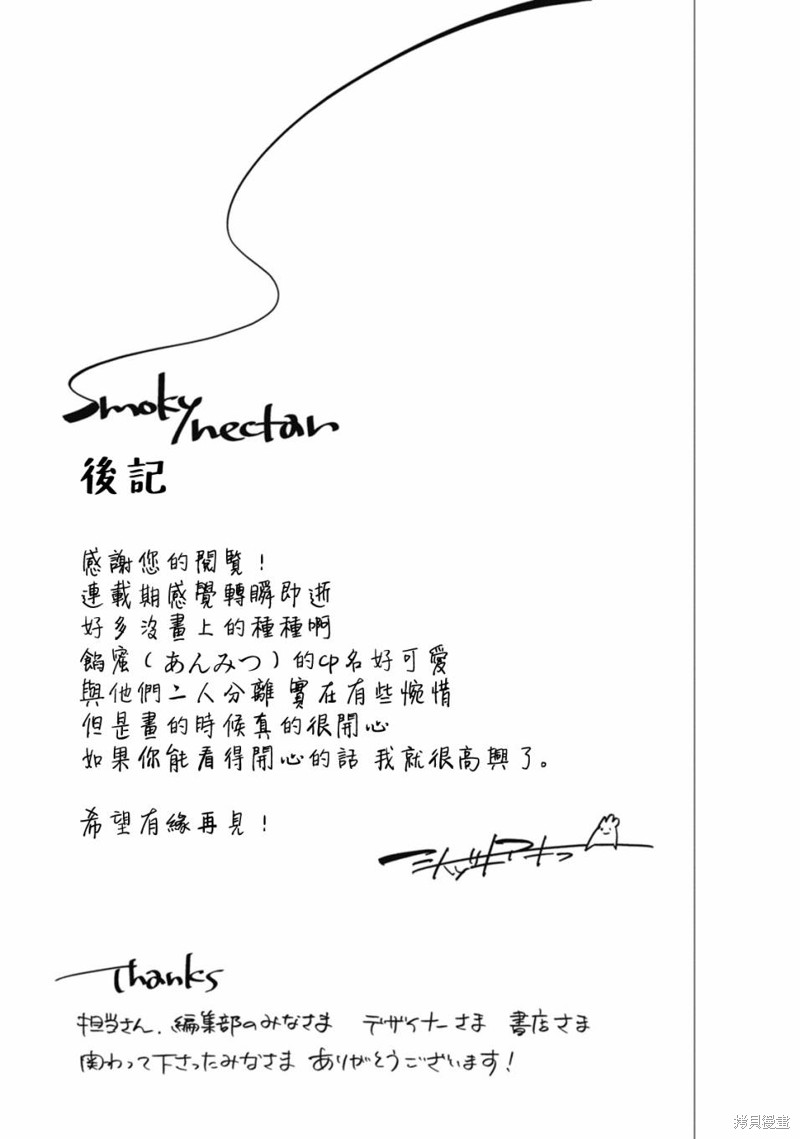 Smoky nectar
後記
感謝您的閱覽！
連載期感覺轉瞬即逝
好多沒畫上的種種啊
餡蜜（あんみつ）的CP名好可愛
與他們二人分離 實在有些惋惜
但是畫的時候真的很開心
如果你能看得開心的話 我就很高興了。
希望有緣再見！
Thanks
担当さん、編集部のみなさま デザイナーさま 書店さま
関わって下さったみなさま ありがとうございます！
拷貝漫畫